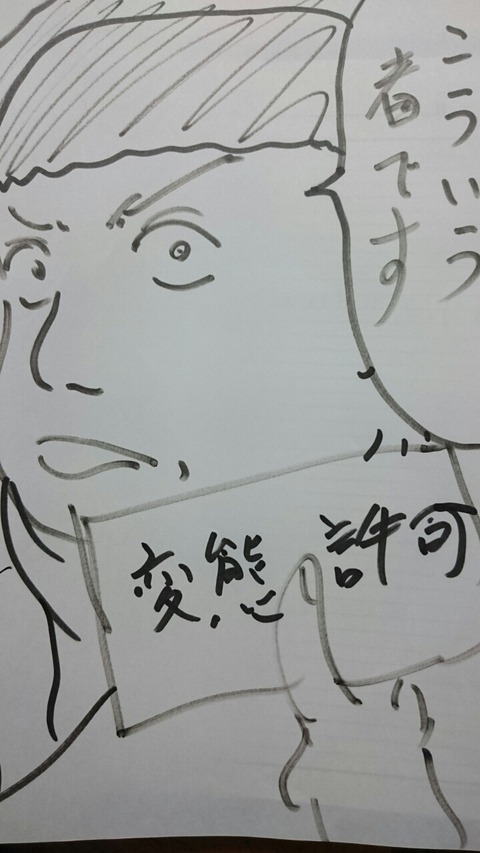 こういう
者です
変態許可